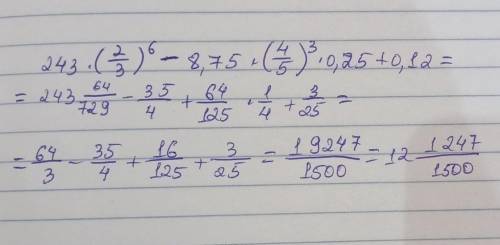 243·(2/3)⁶ − 8,75 · (4/5)³ · 0,25 + 0,12 =
= 243 64/729 − 35/4 + 64/125 · 1/4 + 3/25 =
= 64/3 − 35/4 + 16/125 + 3/25 = 19247/1500 = 12 1247/1500